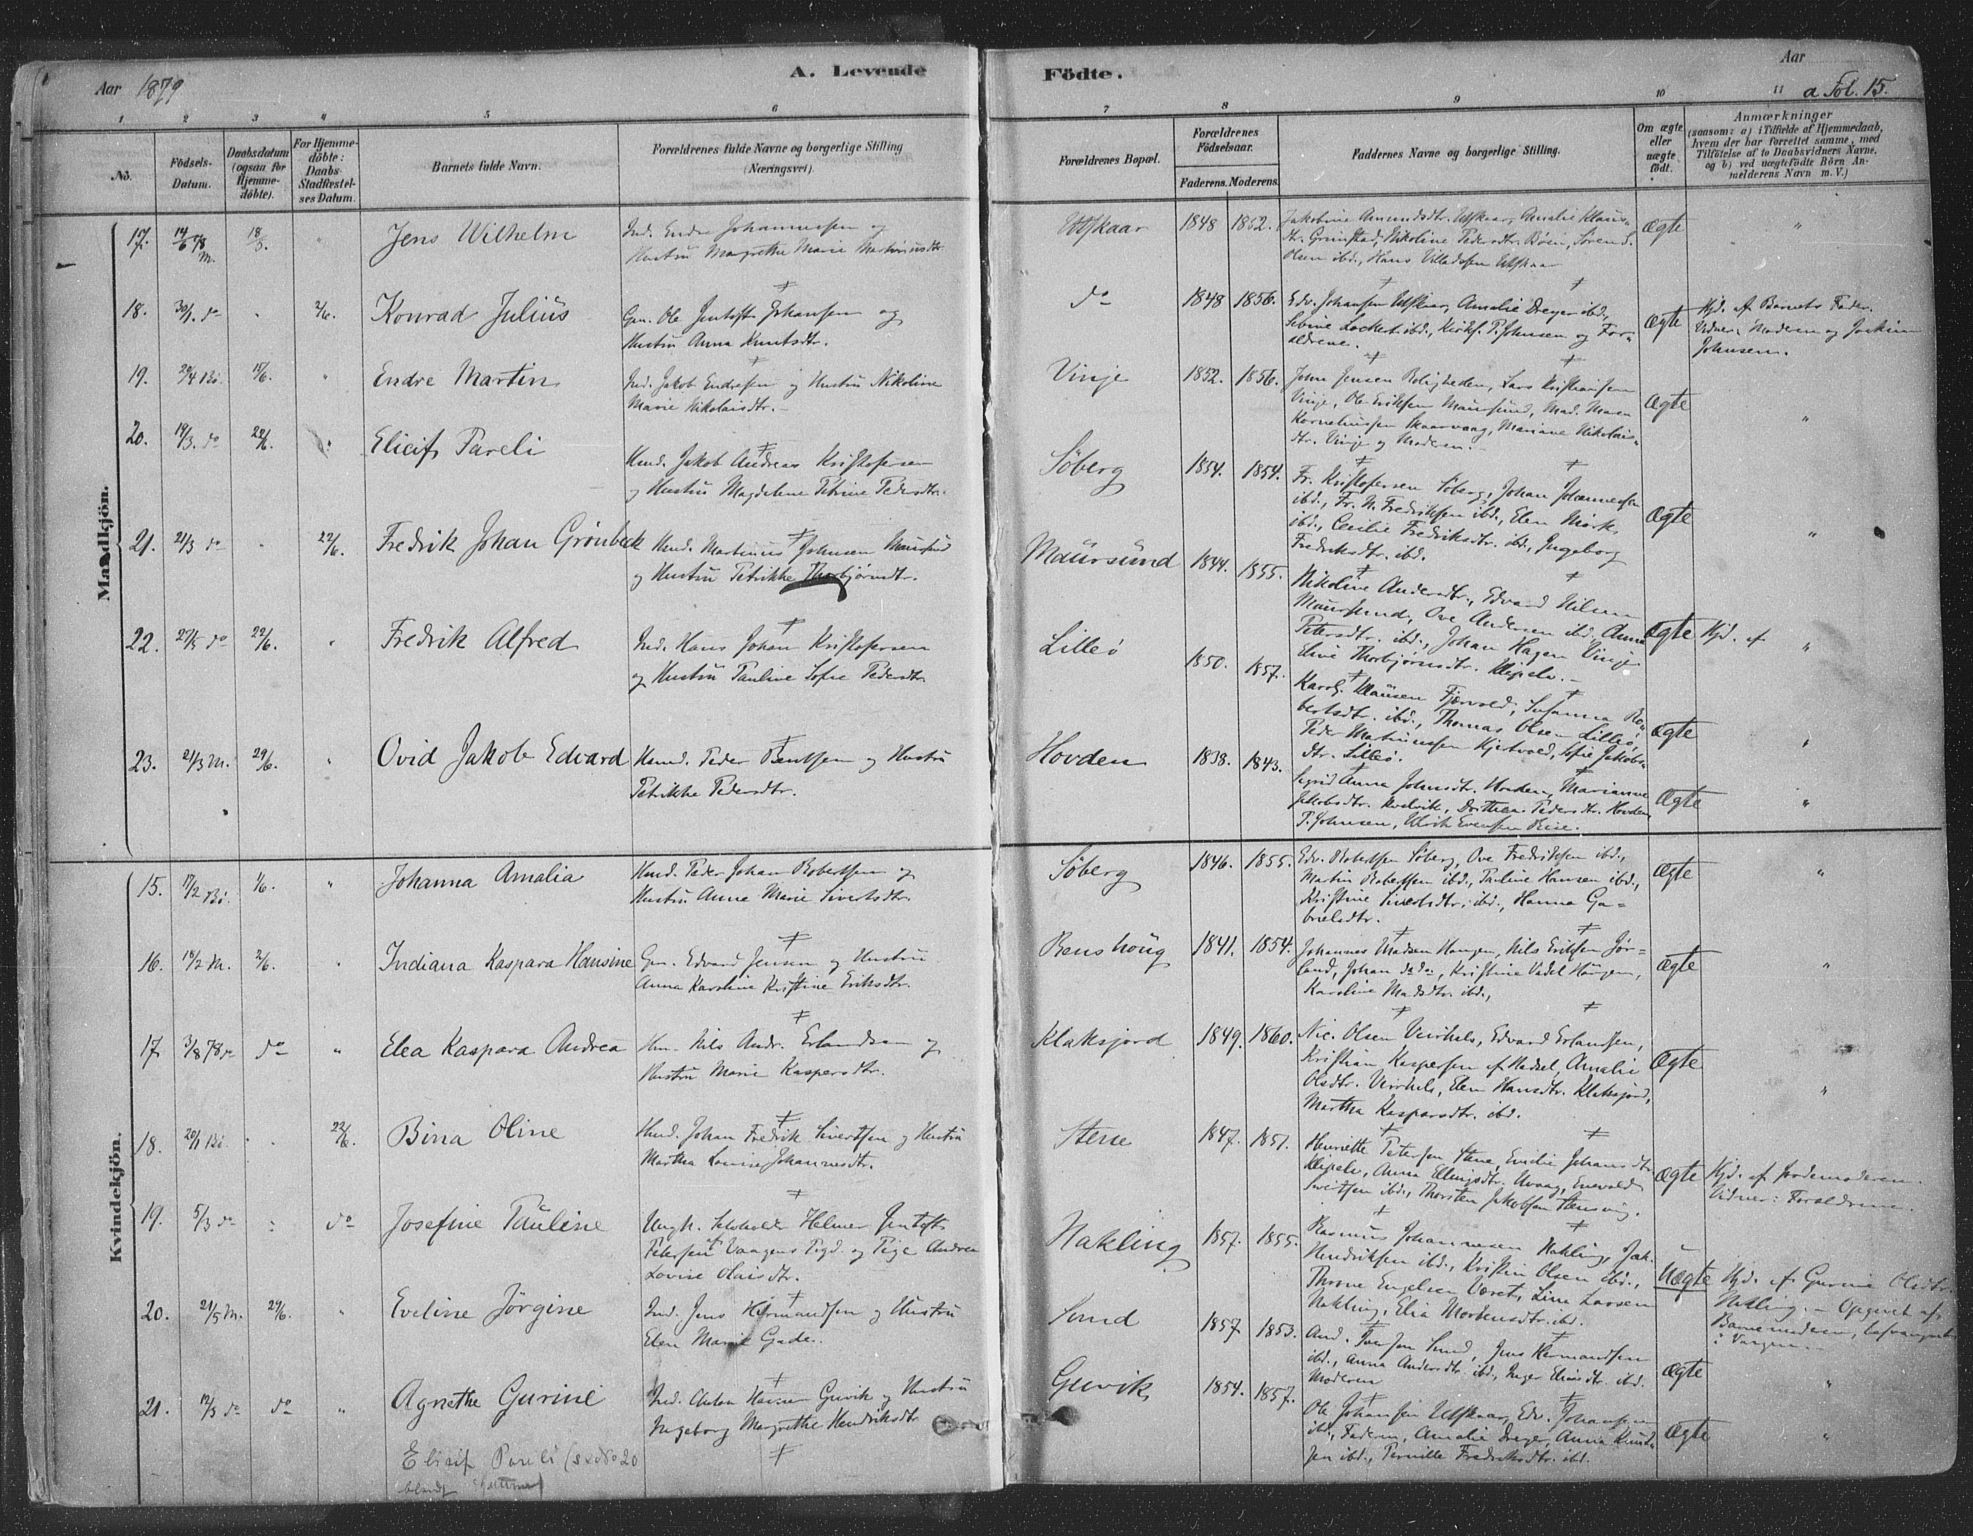 Aar 1879
A. Levende
Födte.
Aar
a Fol. 15.
1 2 3 4 5 6 7 8 9 10 11
No.
Födsels-
Datum.
Daabsdatum
(ogsaa for
Hjemme-
døbte).
For Hjemme-
döbte:
Daabs-
Stadfæstel-
ses Datum.
Barnets fulde Navn.
Forældrenes fulde Navne og borgerlige Stilling
(Næringsvei).
Forældrenes Bopæl.
Forældrenes
Födselsaar.
Faderens. Moderens.
Faddernes Navne og borgerlige Stilling.
Om ægte
eller
uægte
født.
Anmærkninger
(saasom: a) i Tilfælde af Hjemmedaab,
hvem der har forrettet samme, med
Tilföielse af to Daabsvidners Navne.
og b) ved uægtefödte Börn An-
melderens Navn m. V.)
Mandkjön.
17. Jens Wilhelm
Ind. Endre Johannessen og
Hustru Margrethe Marie Martinusdtr.
Utskaar 1848 1852.
Jakobine Amundsdtr. Utskaar, Amalie Klaus-
dtr. Grimstad, Nikoline Pedersdtr. Böen, Søren S.
Olsen ibd., Hans Villadssen Utskaar
Ægte "
18. 30/1. do 2/6. Konrad Julius
Gm. Ole Jentoft Johansen og
Hustru Anna Knutsdtr.
do 1848 1856.
Edv. Johansen Utskaar, Amalie Dreyer ibd.,
Sebine Lockert ibd., Kirkes. P. Johnsen og For-
ældrene.
Ægte
Hjd. af Barnets Fader.
Vidner: Moderen og Joakim
Johnsen.
19. 20/4 Bö. 15/6. Endre Martin
Ind. Jakob Endresen og Hustru Nikoline
Marie Nikolaisdtr.
Vinje 1852. 1856.
John Jensen Boligheden, Lars Kristiansen
Vinje, Ole Eriksen Maursund, Mad. Maren
Korneliussen Skaarvaag, Mariane Nikolais-
dtr. Vinje og Moderen.
Ægte "
20. 14/3. do 22/6. Elicif Pareli
Hmd. Jakob Andreas Kristofersen
og Hustru Magdelene Petrine Pedersdtr.
Söberg 1854. 1854.
Fr. Kristofersen Söberg, Johan Johannessen
ibd., Fr. N. Fredriksen ibd., Elen Mörk
ibd., Cecilie Fredriksdtr. ibd., Ingeborg
Fredriksdtr. ibd.
Ægte "
21. 21/3 do 22/6. Fredrik Johan Grönbeck
Hmd. Martinus Johnsen Maursund
og Hustru Petrikke Thorbjörnsdtr.
Maursund 1844. 1855.
Nikoline Andersdtr., Edvard Nilsen
Maursund, Ove Andersen ibd. Anna
Petersdtr. ibd., Johan Hagen Vinje
Eline Thorbjörnsdtr. Klepelv.
Ægte Hjd. af
22. 27/5 do 22/6. Fredrik Alfred
Ind. Hans Johan Kristofersen
og Hustru Pauline Sofie Pedersdtr.
Lilleö 1850. 1857.
Karol. Klausen Fjærvold, Susanna Ro-
bertsdtr. ibd., Thomas Olsen Lilleö,
Peder Martinussen Kjervold, Sofie Jakobs-
dtr. Lilleö.
Ægte "
23. 21/3 M. 29/6. Ovid Jakob Edvard
Hmd. Peder Bentsen og Hustru
Petrikke Pedersdtr.
Hovden 1838. 1843.
Sigrid Anna Johnsdtr. Hovden, Marianne
Jakobsdtr. Kvalvik, Dorthea Pedersdtr. Hovden
P. Johnsen, Ulrik Evensen Reise.
Ægte "
Kvindekjön.
15. 17/2 Bö. 1/6. Johanna Amalia
Hmd. Peder Johan Robertsen og
Hustru Anne Marie Sivertsdtr.
Söberg 1846. 1855.
Edv. Robertsen Söberg, Ove Fredriksen ibd.,
Martin Robertsen ibd., Pauline Hansen ibd.,
Kristine Sivertsdtr. ibd., Hanna Ga-
brielsdtr.
Ægte "
16. 18/2 M. 2/6. Indiana Kaspara Hansine
Gm. Edvard Jensen og Hustru
Anna Karoline Kristine Eriksdtr.
Renshoug 1841. 1854.
Johannes Madsen Haugen, Nils Eriksen Jör-
land, Johan do do, Kristine Vadel Haugen,
Karoline Madsdtr. ibd.,
Ægte "
17. 3/8 78 do do Elea Kaspara Andrea
Hm. Nils Andr. Erlandsen og
Hustru Marie Kaspersdtr.
Klaksjord 1849. 1860.
Nic. Olsen Veirhals, Edvard Erlansen,
Kristian Kaspersen af Hadsel, Amalie
Olsdtr. Veirhals, Elen Hansdtr. Klaksjord,
Martha Kasparsdtr. ibd.
Ægte "
18. 20/1 Bö 22/6. Bina Oline
Hmd. Johan Fredrik Sivertsen og Hustru
Martha Lovise Johannesdtr.
Stene 1847. 1851.
Henriette Petersen Stene, Emilie Johansdtr.
Klepelv, Anna Ellingsdtr. Avaag, Enevold
Sivertsen ibd., Thorsten Jakobsen Stensvig.
Ægte
Hjd. af Jordemoderen.
Vidner: Forældrene.
19. 5/3 do do Josefine Pauline
Ungk. Selvholder Helmer Jentoft
Petersen Vaagens Pgd. og Pige Andrea
Lovise Olaisdtr.
Nakling 1857. 1855.
Rasmus Johannesen Nakling, Jak.
Hendriksen ibd., Kristin Olsen ibd.,
Throne Engelsen Været, Lina Larsen
Nakling, Elia Mortensdtr. ibd.
Uægte
Hjd. af Gurine Olsdtr.
Nakling. – Opgivet af
Barnemoderen, besvangret
i Vaagen.
20. 21/5 M. 29/6. Eveline Jörgine
Ind. Jens Hermandsen og Hustru
Elen Marie Gade.
Sund 1857 1853.
And. Iversen Sund, Jens Hermandsen
ibd., Anna Andersdtr. ibd., Inger Eliasdtr. ibd.
Moderen
Ægte "
21. 12/3 do do Agnethe Gurine
Ind. Anton Hansen Guvik og Hustru
Ingeborg Margrethe Hendriksdtr
Guvik 1854. 1857.
Ole Johansen Utskaar, Edv. Johansen
ibd., Faderen, Amalie Dreyer, Anna Knud-
sen ibd., Pernille Fredriksdtr. ibd.
Ægte "
Elicif Pareli (se No 20
blandt Guttene)